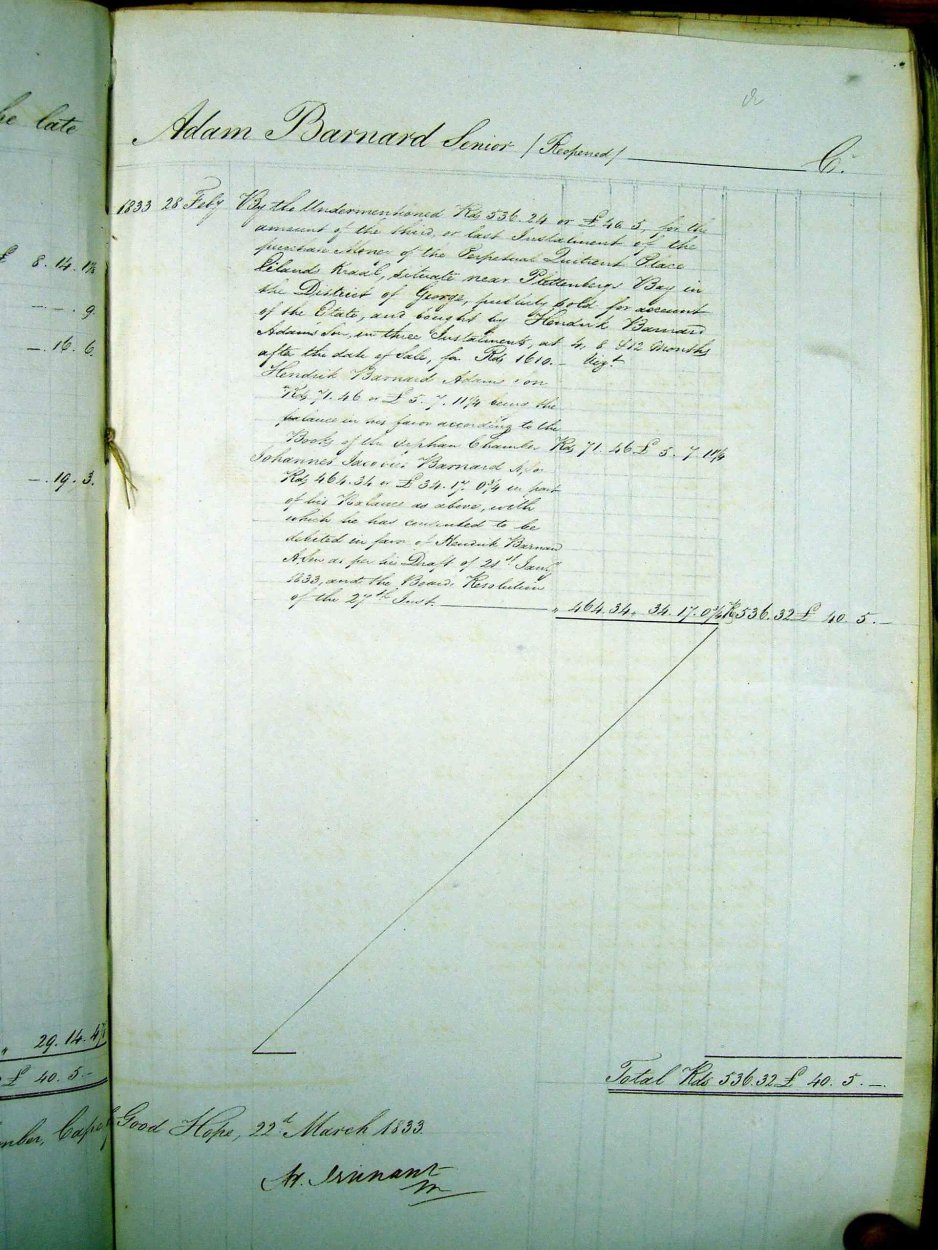 he late
£ 8. 14. 1¾
— — . 9.
— 16. 6.
— 19. 3.
" 29. 14. 4½
£ 40. 5. —
Adam Barnard Senior /Reopened/ ——— Cr.
1833 28 Feby By the Undermentioned Rds 536.24 or £ 40. 5. for the
amount of the third or last Instalment of the
purchase Money of the Perpetual Quitrent Place
Kraal, situate near Plettenbergs Bay in
the District of George, publicly sold for account
of the Estate, and bought by Hendrik Barnard
Adam's Son, in three Instalments, at 4, 8 & 12 Months
after the date of Sale, for Rds 1610. — Vizt
Hendrik Barnard Adams son
Rds 71. 46 or £ 5. 7. 11¼ being the
balance in his favor according to the
Books of the Orphan Chamber Rds 71. 46 £ 5. 7. 11¼
Johannes Jacobus Barnard
Rds 464. 34 or £ 34. 17. 0¾ in part
of his Balance as above, with
which he has consented to be
debited in favor of Hendrik Barnard
as per his Draft of 21st Jany
1833, and the Board's Resolution
of the 27th Inst. ——— " 464. 34 " 34. 17. 0¾ Rs 536. 32 £ 40. 5. —
Total Rds 536. 32 £ 40. 5. —
Cape of Good Hope, 22d March 1833.